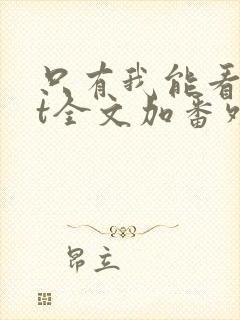 只有我能看
t全文加番外
昂立